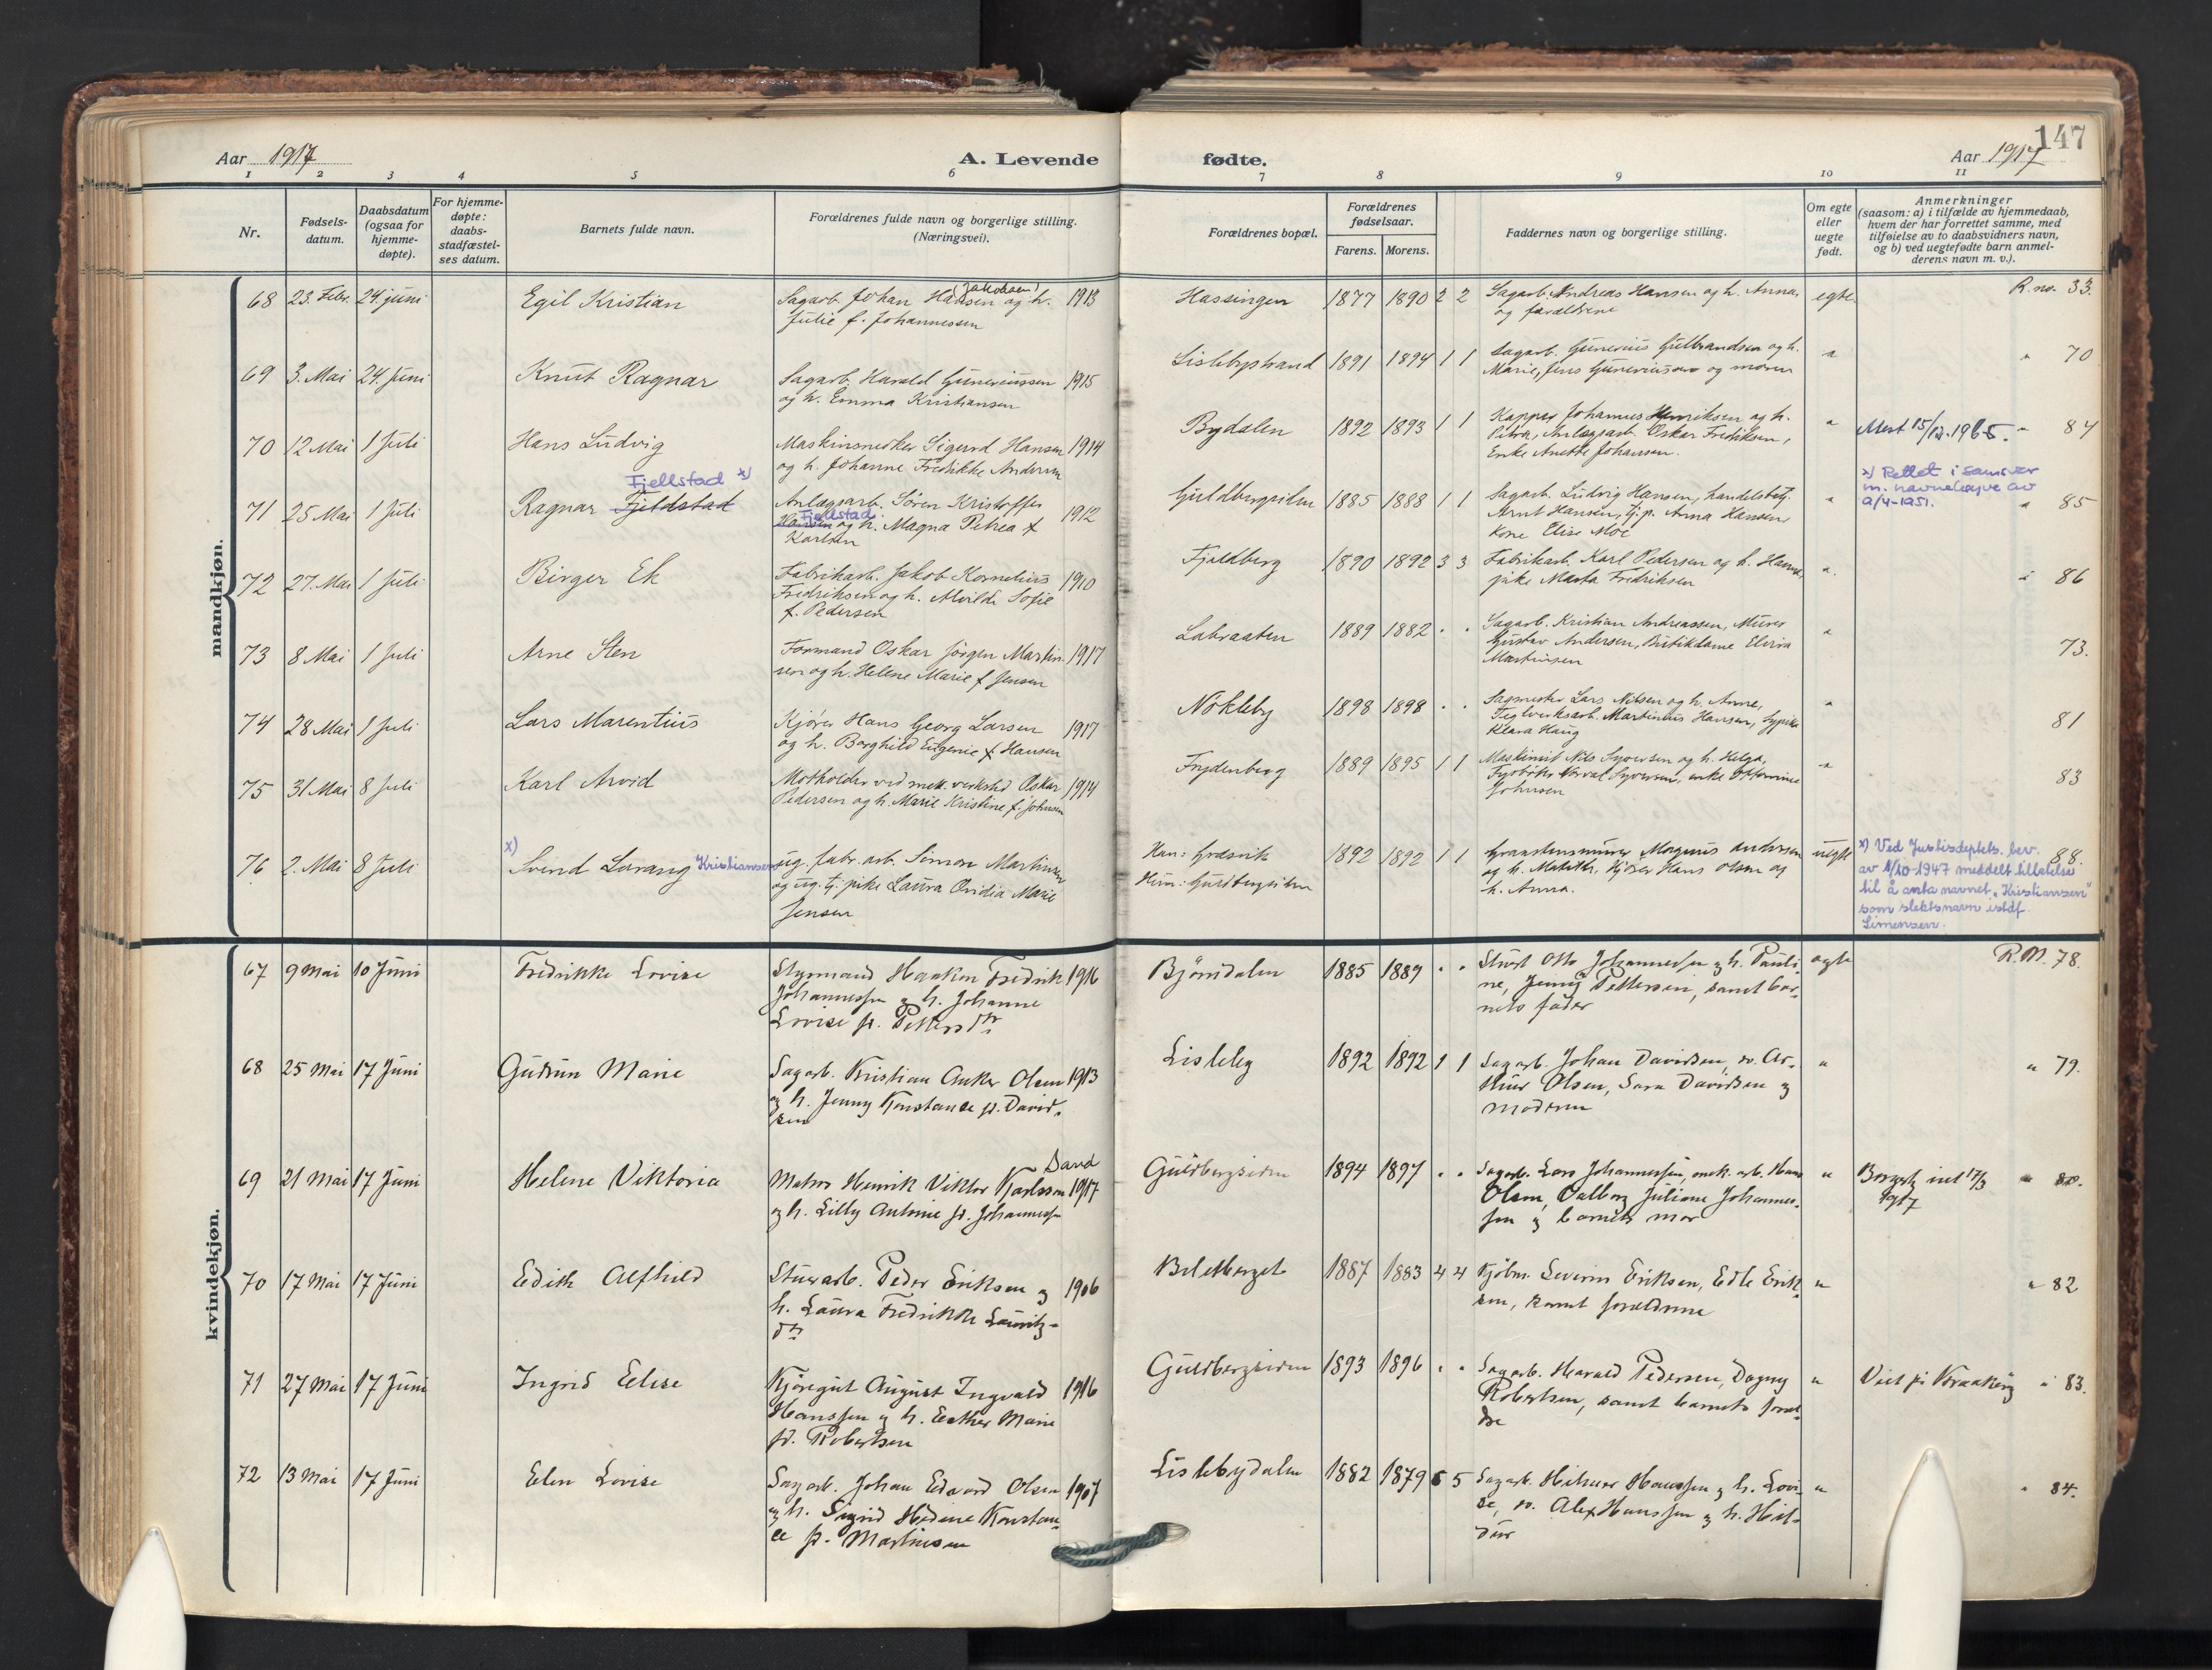 147
Aar 1917
A. Levende
fødte.
Aar 1917
1 2 3 4 5 6 7 8 9 10 11
Nr.
Fødsels-
datum.
Daabsdatum
(ogsaa for
hjemme-
døpte).
For hjemme-
døpte:
daabs-
stadfæstel-
ses datum.
Barnets fulde navn.
Forældrenes fulde navn og borgerlige stilling.
(Næringsvei).
Forældrenes bopæl.
Forældrenes
fødselsaar.
Farens. Morens.
Faddernes navn og borgerlige stilling.
Om egte
eller
uegte
født.
Anmerkninger
(saasom: a) i tilfælde av hjemmedaab,
hvem der har forrettet samme, med
tilføielse av to daabsvidners navn,
og b) ved uegtefødte barn anmel-
derens navn m. v.).
mandkjøn.
68 23. Febr. 24. juni Egil Kristian
Sagarb. Johan Hansen (Jakobsen) og h. 1913
Julie f. Johannessen
Hassingen 1877 1890 2 2
Sagarb. Andreas Hansen og h. Anna,
og forældrene
egte R. no. 33.
69 3. Mai 24. Juni Knut Ragnar
Sagarb. Harald Gunerius­sen 1915
og h. Emma Kristiansen
Lislebystrand 1891 1894 1 1
Sagarb. Gunerius Gulbrandsen og h.
Marie, Jens Guneriussen og moren
" " 70
70 12 Mai 1 Juli Hans Ludvig
Maskinsnedker Sigurd Hansen 1914
og h. Johanne Fredrikke Andersen
Bydalen 1892 1893 1 1
Johannes Henriksen og h.
Petra, Anlægsarb. Oskar Fredriksen,
Enke Anette Johansen.
" Mert 15/12-1965. " 84
71 25 Mai 1 Juli Ragnar Fjeldstad Fjellstad x)
Anlægsarb. Søren Kristoffer
Hansen Fjellstad og h. Magna Petrea f. 1912
Karlsen
Guldbergsiden 1885 1888 1 1
Sagarb. Ludvig Hansen, handelsbetj.
Arnt Hansen, tj.p. Anna Hansen,
Kone Elise Moe
" x) Rettet i samsvar
m. navneloven av
9/4-1951. " 85
72 27. Mai 1 Juli Birger Ek
Fabrikarb. Jakob Kornelius 1910
Fredriksen og h. Alvilde Sofie
f. Pedersen
Fjeldberg 1890 1892 3 3
Fabrikarb. Karl Pedersen og h. Hanna,
pike Marta Fredriksen
" " 86
73 8 Mai 1 Juli Arne Sten
Formand Oskar Jørgen Martin- 1917
sen og h. Helene Marie f. Jensen
Labraaten 1889 1882 . .
Sagarb. Kristian Andreassen, Murer
Gustav Andersen, Butikdame Elvira
Martinsen
" 73.
74 28 Mai 1 Juli Lars Marentius
Kjører Hans Georg Larsen 1917
og h. Borghild Eugenie f. Hansen
Nökleby 1898 1898 . .
Sagmester Lars Nilsen og h. Anne,
Teglverksarb. Martinius Hansen, Sypike
Klara Haug
" 81
75 31 Mai 8 Juli Karl Arvid
Motholder ved mek. verksted Oskar 1914
Pedersen og h. Marie Kristine f. Johnsen
Frydenberg 1889 1895 1 1
Maskinist Nils Syversen og h. Helga,
Fyrbøter Norval Syversen, enke
Johnsen
" 83
76 2. Mai 8 Juli x) Svend Lorang Kristiansen
ug. fabr. arb. Simon Martinsen
og ug. tj. pike Laura Ovidia Marie
Jensen
Han: Gresvik 1892 1892 1 1
Hun: Guldbergsiden
Granstensminerer Magnus Andersen
og h. Matilde. Kjører Hans Olsen og
h. Anna.
uegte x) Ved Justisdeptets. bev. 88.
av 1/10-1947 meddelt tillatelse
til å anta navnet "Kristiansen"
som slektsnavn istdf.
Simensen.
kvindekjøn.
67 9 Mai 10 Juni Fredrikke Lovise
Styrmand Haakon Fredrik 1916
Johannessen og h. Johanne
Lovise f. Pettersdtr
Bjørndalen 1885 1889 . .
Otto Johannessen og h. Pauli-
ne, Jenny Pettersen, samt bar-
nets fader
egte R. N. 78.
68 25 Mai 17 Juni Gudrun Marie
Sagarb. Kristian Anker Olsen 1913
og h. Jenny Konstanse f. David-
sen
Lisleby 1892 1892 1 1
Sagarb. Johan Davidsen, sv. Ar-
thur Olsen, Sara Davidsen og
moderen
" " 79.
69 21 Mai 17 Juni Helene Viktoria
Matros Henrik Viktor Karlsson Sand 1917
og h. Lilly Antonie f. Johannessen
Guldbergsiden 1894 1897 . .
Sagarb. Lars Johannessen, mek. arb. Hans
Olsen, Valborg Juliane Johannes-
sen og barnets mor
" Borgerl. viet 17/3 " 80.
1917
70 17 Mai 17 Juni Edith Alfhild
Stuerarb. Peder Eriksen og 1906
h. Laura Fredrikke Lauritz-
dtr
1887 1883 4 4
Kjøbm. Severin Eriksen, Edle Erik-
sen, samt forældrene
" " 82
71 27 Mai 17 Juni Ingrid Elise
Kjøregut August Ingvald 1916
Hanssen og h. Esther Marie
f. Robertsen
Guldbergsiden 1893 1896 . .
Sagarb. Harald Pedersen, Dagny
Robertsen, samt barnets foræl-
dre
" Viet på Kraakerøy " 83.
72 13 Mai 17 Juni Elen Lovise
Sagarb. Johan Edvard Olsen 1907
og h. Sigrid Hedine Konstan-
ce f. Martinsen
Lislebydalen 1882 1879 6 5
Sagarb. Hilmer Hanssen og h. Lovi-
se, sv. Alex Hanssen og h. Hil-
dur
" " 84.